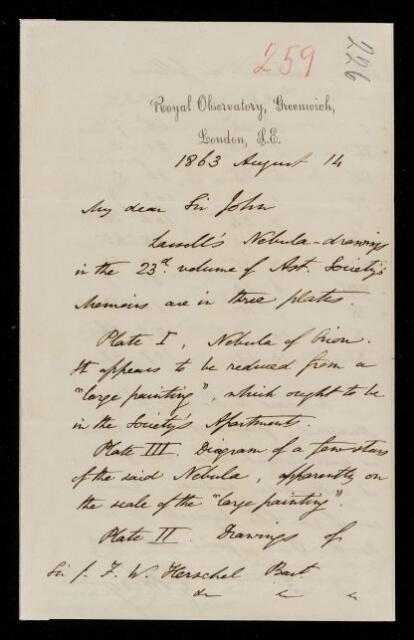 259
226
Royal Observatory, Greenwich,
London, S.E.
1863 August 14
My dear Sir John
Lassell's Nebula-drawings
in the 23d. volume of Ast. Society's
Memoirs are in three plates.
Plate I, Nebula of Orion.
It appears to be reduced from a
"large painting", which ought to be
in the Society's Apartments.
Plate III. Diagram of a few stars
of the said Nebula, apparently on
the scale of the "large painting".
Plate II. Drawings of
Sir J. F. W. Herschel Bart